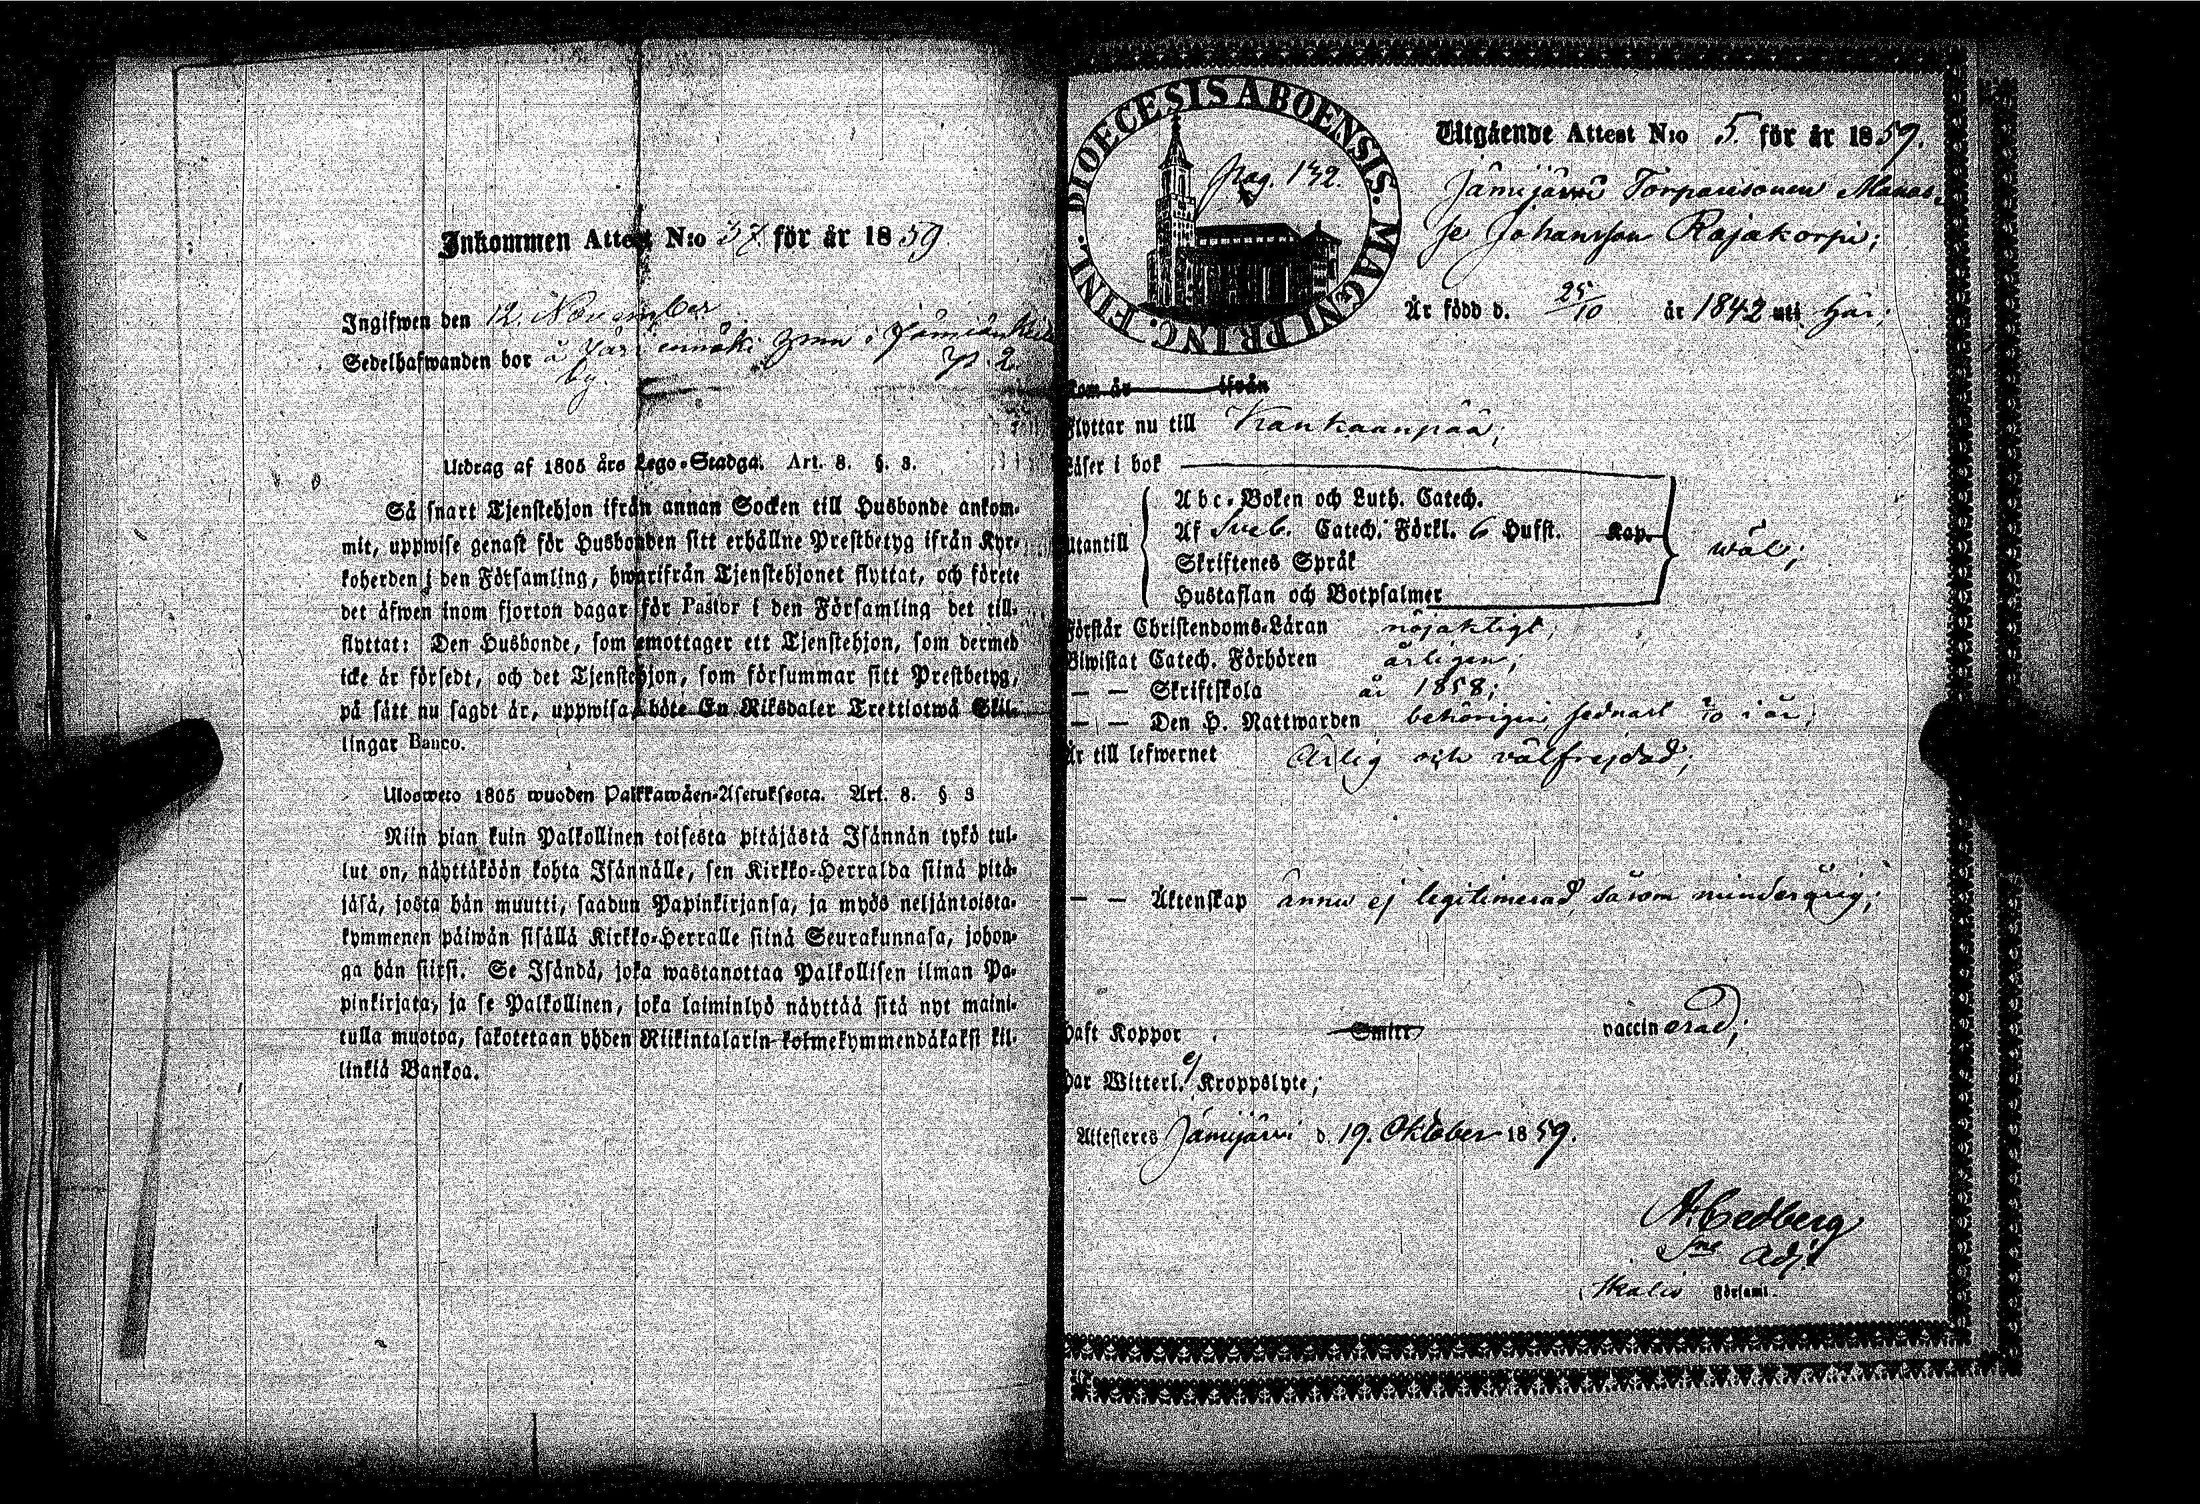 Inkommen Attest N:o 37 för år 1859
Ingifwen den 12. November
Sedelhafwanden bor å
by.
Utdrag af 1805 års Lego-Stadga. Art. 8. §. 3.
Så snart Tjenstehjon ifrån annan Socken till Husbonde ankom-
mit, uppwise genast för Husbonden sitt erhållne Prestbetyg ifrån Kyr-
koherden i den Församling, hwarifrån Tjenstehjonet flyttat, och förete
det äfwen inom fjorton dagar för Pastor i den Församling det till-
flyttat: Den Husbonde, som emottager ett Tjenstehjon, som dermed
icke är försedt, och det Tjenstehjon, som försummar sitt Prestbetyg,
på sätt nu sagdt är, uppwisa, böte En Riksdaler Trettiotwå Skil-
lingar Banco.
Ulosweto 1805 wuoden Palkkawäen-Asetuksesta. Art. 8. § 3
Niin pian kuin Palkollinen toisesta pitäjästä Isännän tykö tul-
lut on, näyttäköön kohta Isännälle, sen Kirkko-Herralda siinä pitä-
jäsä, josta hän muutti, saadun Papinkirjansa, ja myös neljäntoista-
kymmenen päiwän sisällä Kirkko-Herralle siinä Seurakunnasa, johon-
ga hän siirsi. Se Isändä, joka wastanottaa Palkollisen ilman Pa-
pinkirjata, ja se Palkollinen, joka laiminlyö näyttää sitä nyt maini-
tulla muotoa, sakotetaan yhden Riikintalarin kolmekymmendäkaksi kil-
linkiä Bankoa.
DIOECESIS ABOENSIS. MAGNI PRINC. FINL.
Pag. 132.
Utgående Attest N:o 5 för år 1859.
Jämijärvi Torparesonen Manas-
se Johansson Rajakorpi;
Är född d. 25/10 år 1842 uti här;
kom år ifrån
Flyttar nu till Kankaanpää;
Läser i bok
Utantill
Abc-Boken och Luth. Catech.
Af Sveb. Catech. Förkl. 6 Hufst. Kap.
Skriftenes Språk
Hustaflan och Botpsalmer
wäl;
Förstår Christendoms-Läran nöjaktigt;
Biwistat Catech. Förhören årligen;
— — Skriftskola år 1858;
— — Den H. Nattwarden behörigen, sednast 2/10 i år;
Är till lefwernet Ärlig och välfrejdad;
— — Äktenskap ännu ej legitimerad, såsom minderårig;
haft Koppor Smitt vaccinerad;
har Witterl. ej Kroppslyte;
Attesteres Jämijärvi d. 19. Oktober 1859.
A. Cedberg
Sne Adj.
Ikalis Församl.